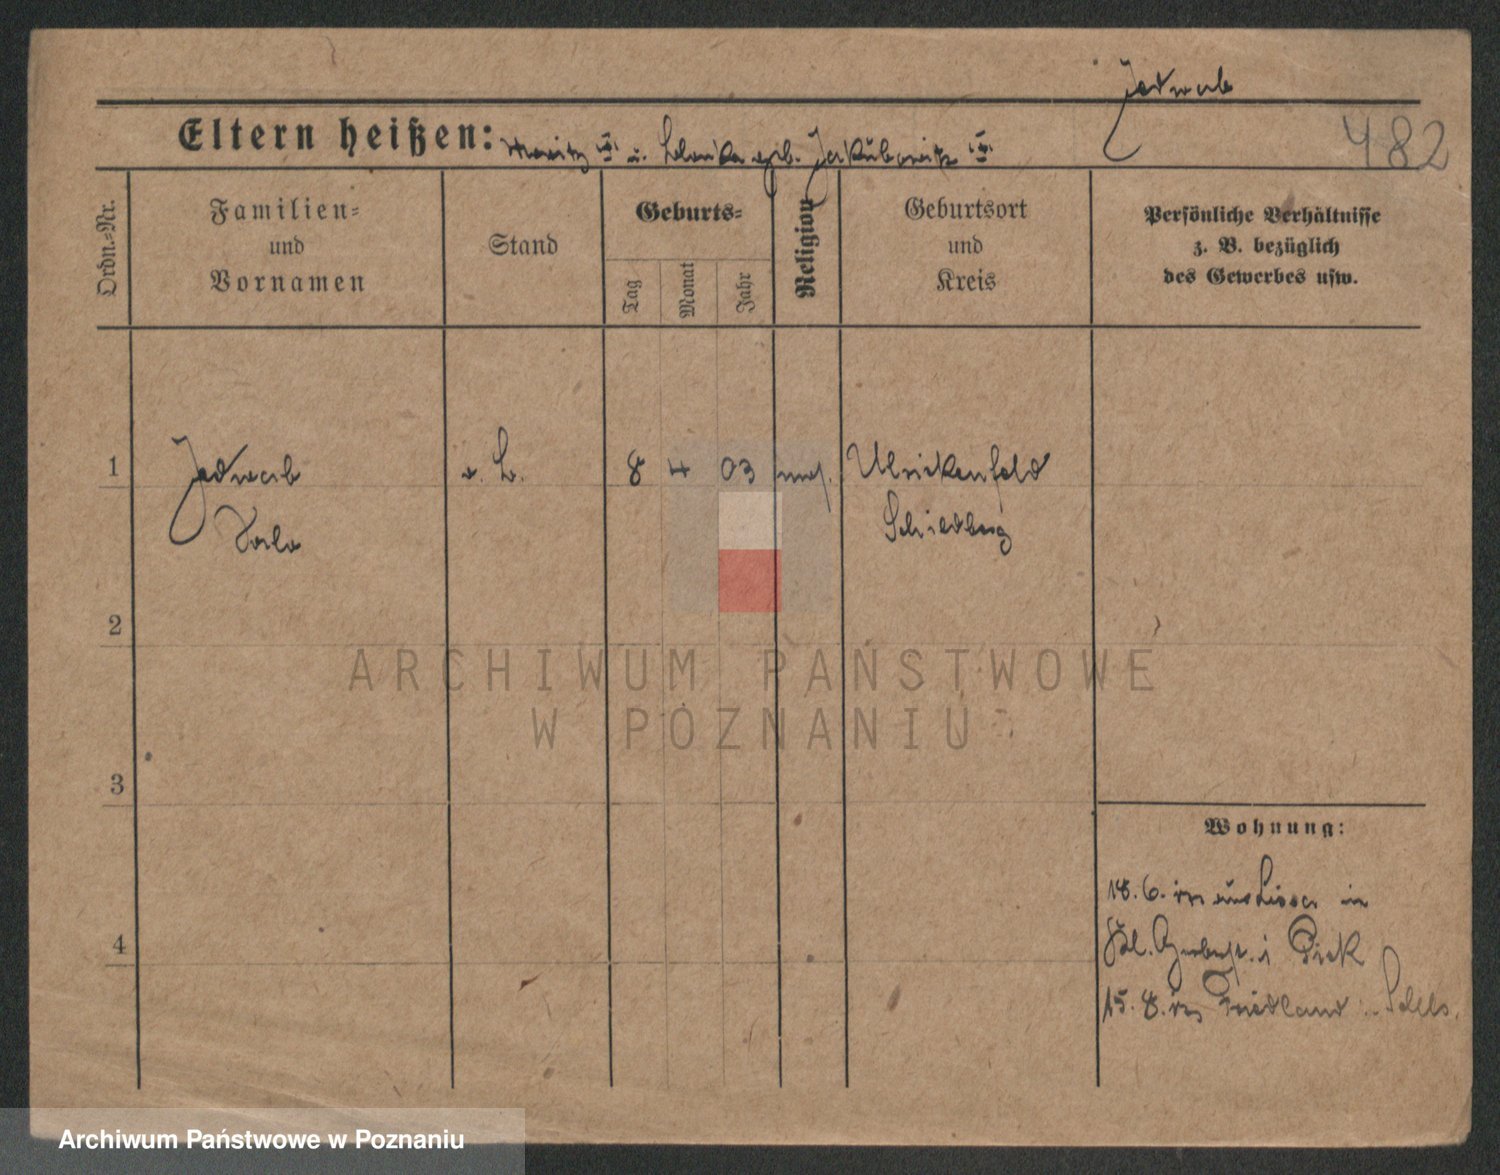 Jedwab
482
Eltern heißen: Moritz u. geb. Jakubowitz
Ordn.-Nr.
Familien-
und
Vornamen
Stand
Geburts-
Tag
Monat
Jahr
Religion
Geburtsort
und
Kreis
Persönliche Verhältnisse
z. B. bezüglich
des Gewerbes usw.
1
Jedwab
8 4 03 mos.
Ulrickenfeld
Schildberg
2
ARCHIWUM PAŃSTWOWE
W POZNANIU
3
Wohnung:
18. 6. aus Lissa in
4
15. 8. Friedland
Archiwum Państwowe w Poznaniu